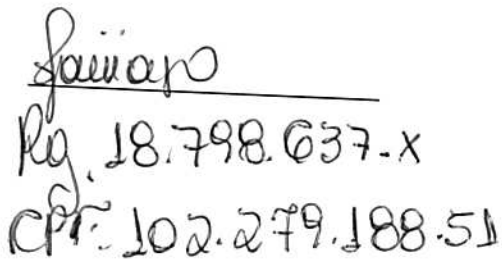 Rg. 18.798.637-x
CPF: 102.279.188.51